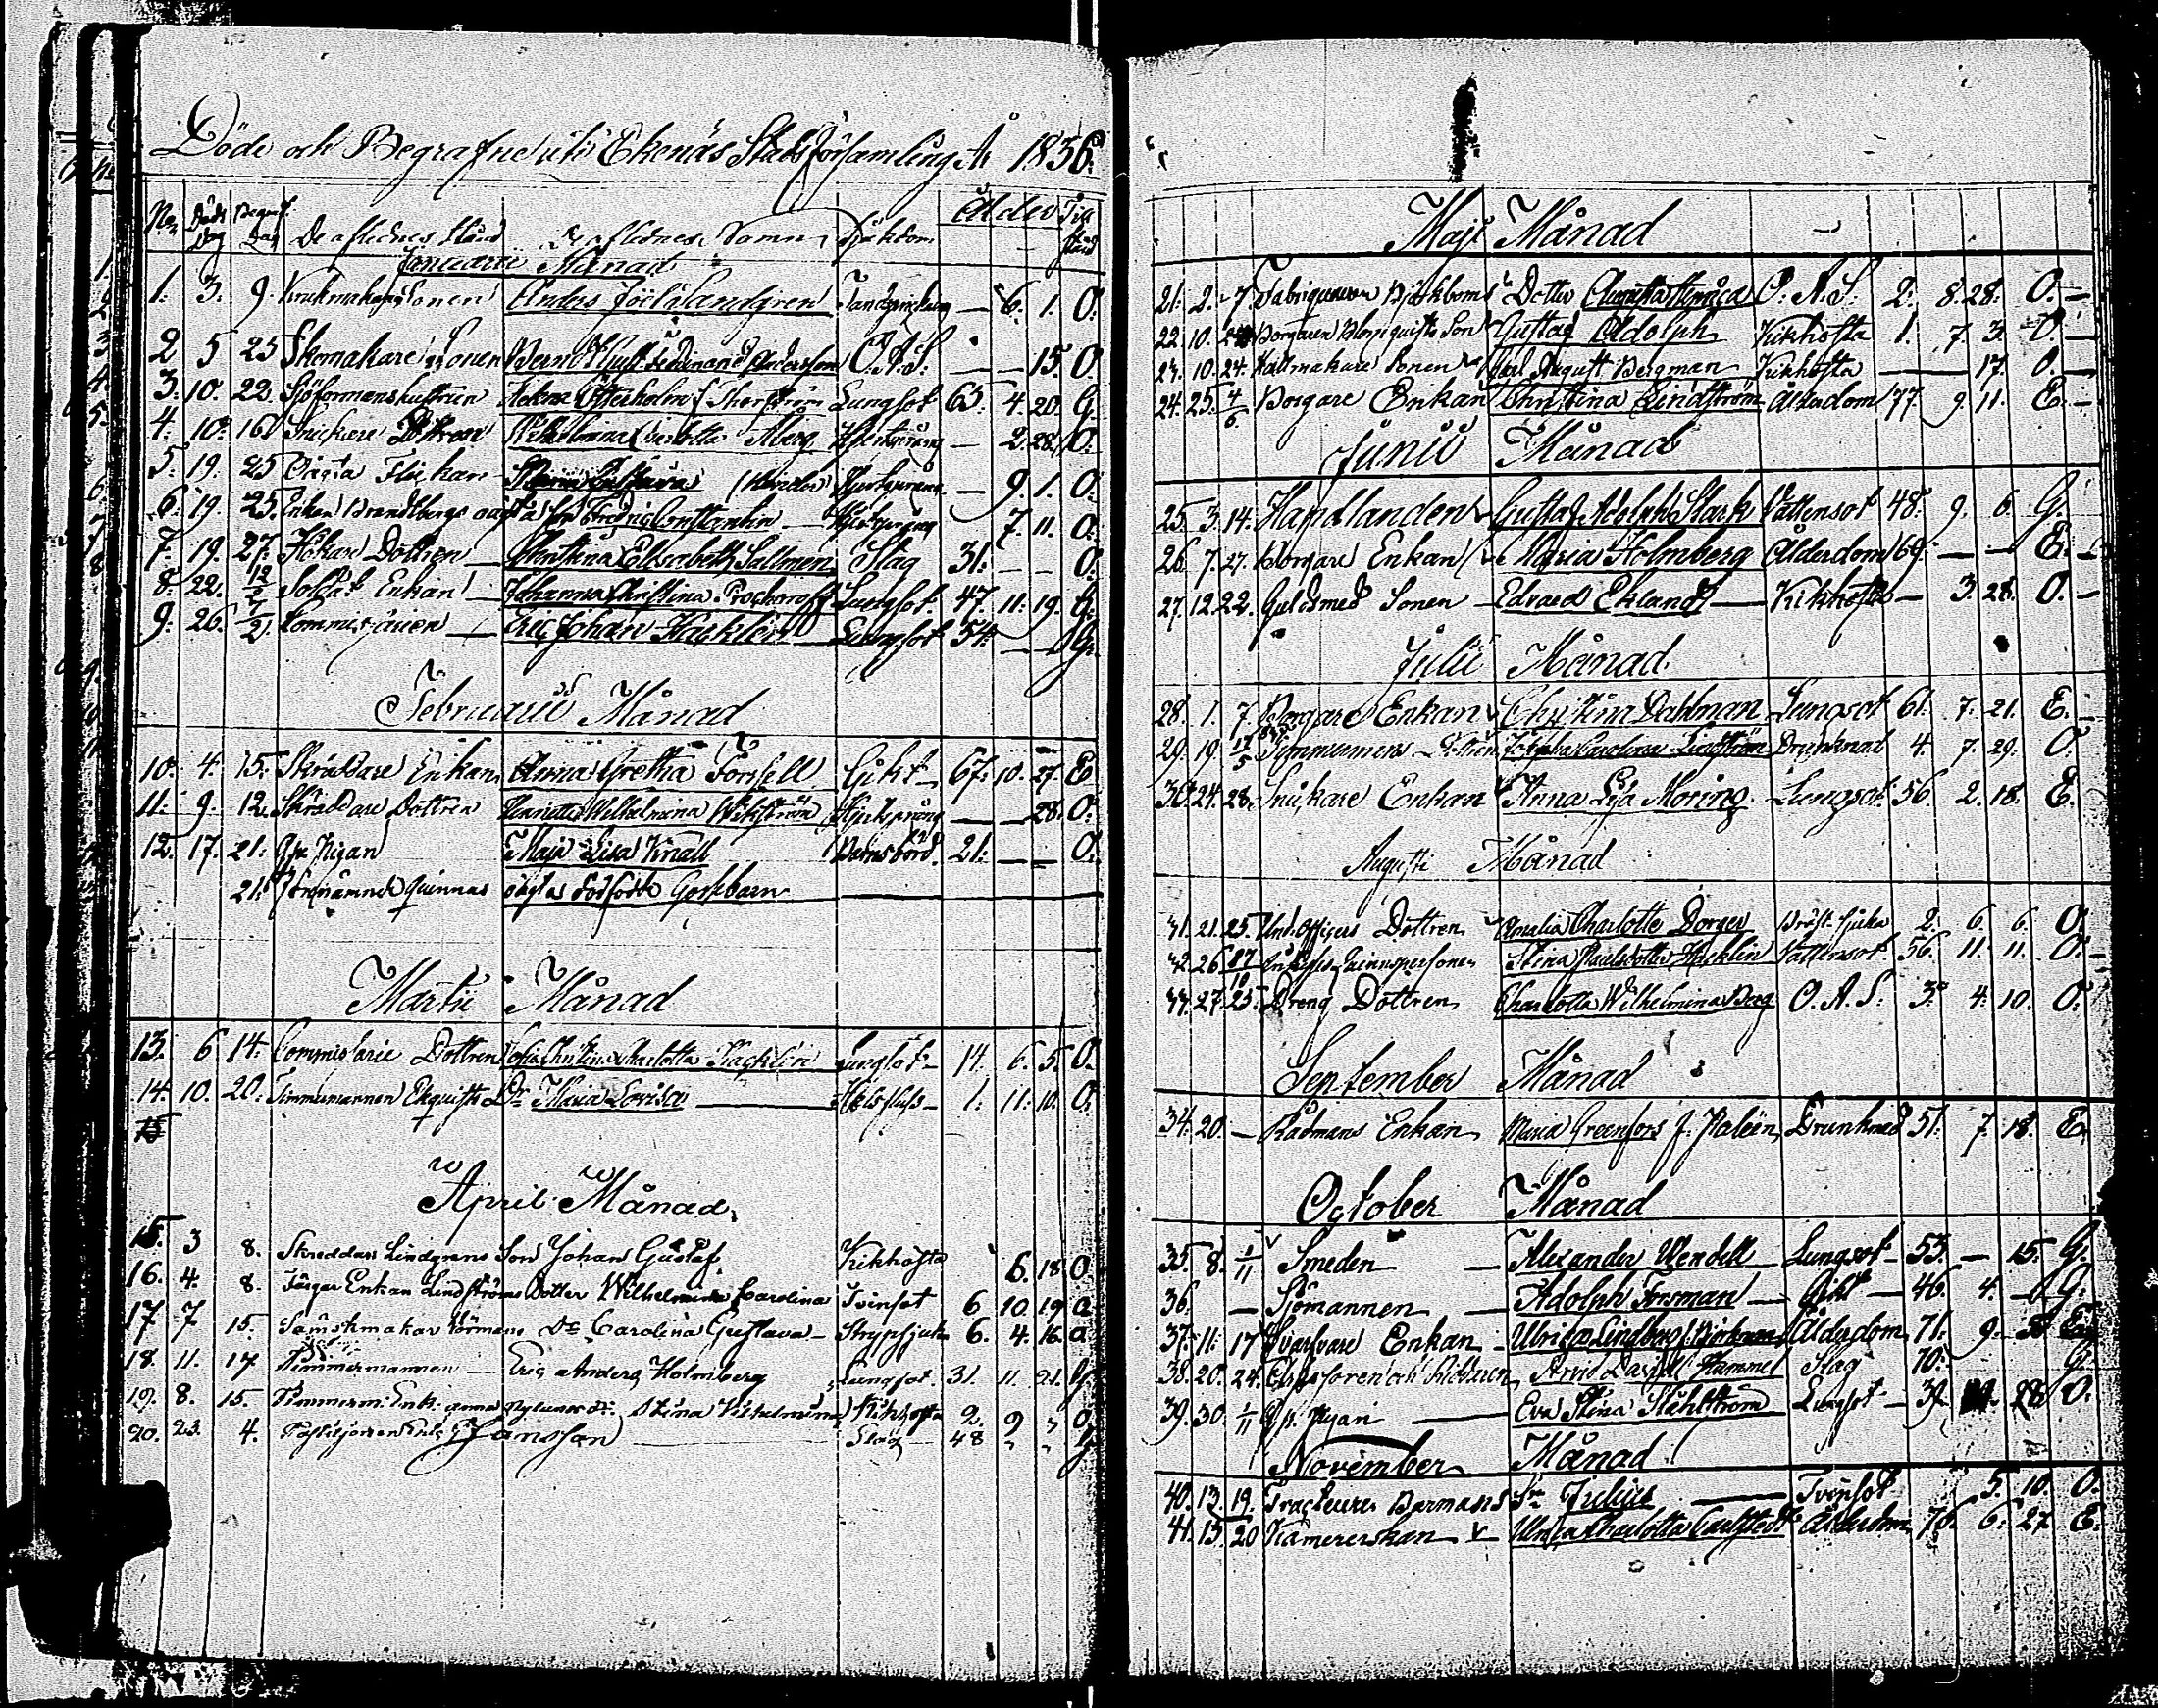 Döde och Begrafne uti Ekenäs Stadsförsamling År 1836.
No Döds Dag Begraf. Dag De aflidnes Stånd De aflidnes Namn Sjukdom Ålder Till stånd
Januarii Månad
1. 3. 9. Sonen Anders — 6. 1. O.
2 5 25 Skomakare Sonen Bernd Ferdinand O.A.S. — — 15. O.
3. 10. 22. Sjöformans hustrun Lungsot 65. 4. 20. G.
4. 10. 16. Snickare Wilhelmina Charlotta Åberg Hjertsprång — 2. 28. O.
5. 19. 25 Oägta Flickan Hjertsprång — 9. 1. O.
6. 19. 25. Enkan Brandtbergs oägta Son Fredric Constantin — Hjertsprång 7. 11. O.
7. 19. 27. Dottren — Christina Elisabeth Sallmen Slag 31. — — O.
8. 22. 12/2 Soldat Enkan — Johanna Christina Prochoroff Lungsot 47. 11. 19. G.
9. 26. 7/2 Commissarien — Eric Johan Hacklin Lungsot 54. — — G.
Februarii Månad
10. 4. 15. Skräddare Enkan Anna Gretha Forssell Gikt — 67. 10. 27. E
11. 9. 12. Skräddare Dottren Henrietta Wilhelmina Wikström Hjertsprång — — 28. O.
12. 17. 21. Pigan Maja Lisa Knall Barnsbörd. 21. — — O.
21. Förenämnde Quinnas oägta dödfödde Gossebarn
Martii Månad
13. 6 14. Commissarie Dottren Sofia Christina Charlotta Hacklin Lungsot — 14. 6. 5. O.
14. 10. 20. Timmermannen Ekquists Dr Maria Lovisa — 1. 11. 10. O.
15
April Månad
15. 3 8. Skreddare Lindgrens Son Johan Gustaf. Kikhosta 6. 18 O
16. 4. 8. Enkan Lindströms Dotter Wilhelmina Carolina Tvinsot 6 10 19 O
17 7 15. Carolina Gustava — Strypsjuka 6. 4. 16. O.
18. 11. 17 Timmermannen — Eric Anders Holmberg Lungsot. 31. 11. 21. G.
19. 8. 15. Timmerm. Enk. Anna Stina Wilhelmina Kikhosta 2. 9 O
20. 23. 4. Jansson — Slag 48 G
Maji Månad
21. 2. 7 Fabriqueuren Björkboms Dotter O.A.S. 2. 8. 28. O. —
22. 10. 24 Borgaren Blomquists Son Gustaf Adolph Kikhosta 1. 7. 3. O. —
23. 10. 24. Sonen Carl August Bergman Kikhosta — 17. O. —
24. 25. 4/6 Borgare Enkan Christina Lindström Ålderdom 77. 9. 11. E. —
Junii Månad
25. 3. 14. Handlanden Gustaf Adolph Stark Vattensot 48. 9. 6. G.
26. 7. 27. Borgare Enkan Maria Holmberg Ålderdom 69. — — E. —
27. 12. 22. Guldsmed Sonen — Edvard Eklund — Kikhosta — 3. 28. O. —
Julii Månad
28. 1. 7. Borgare Enkan Christina Dahlman Lungsot 61. 7. 21. E. —
29. 19. Josepha Carolina Lindström Drunknad 4. 7. 29. O.
30. 24. 28. Snickare Enkan Anna Moring Lungsot. 56. 2. 18. E. —
Augusti Månad
31. 21. 25. Und. Officers Dottren Amalia Charlotte Dorger Bröst-sjuka 2. 6. 6. O.
32. 26 Quinnspersonen Stina Hacklin Vattensot. 56. 11. 11. O. —
33. 27. 25. Dreng Dottren Charlotta Wilhelmina Berg O.A.S. 3. 4. 10. O.
September Månad
34. 20. — Rådmans Enkan Maria Greenfors f. Drunknad 51. 7. 18. E.
October Månad
35. 8. 1/11 Smeden — Alexander Wendell Lungsot — 53. — 15. G.
36. — Sjömannen — Adolph Forsman — Gikt — 46. 4. — G.
37. 11. 17 Svarfvare Enkan — Ulrica Lindberg Ålderdom 71. 9. E.
38. 20. 24. Hammel Slag 70. G.
39. 30. 1/11 Pigan — Eva Stina Ståhlström Lungsot — 39 28 O.
November Månad
40. 13. 19. Tracteuren Barmans Sn Julius — Tvinsot 5. 10. O.
41. 15. 20 Kamererskan — Ulrica Charlotta Carlstedt Ålderdom 76. 6. 27. E.